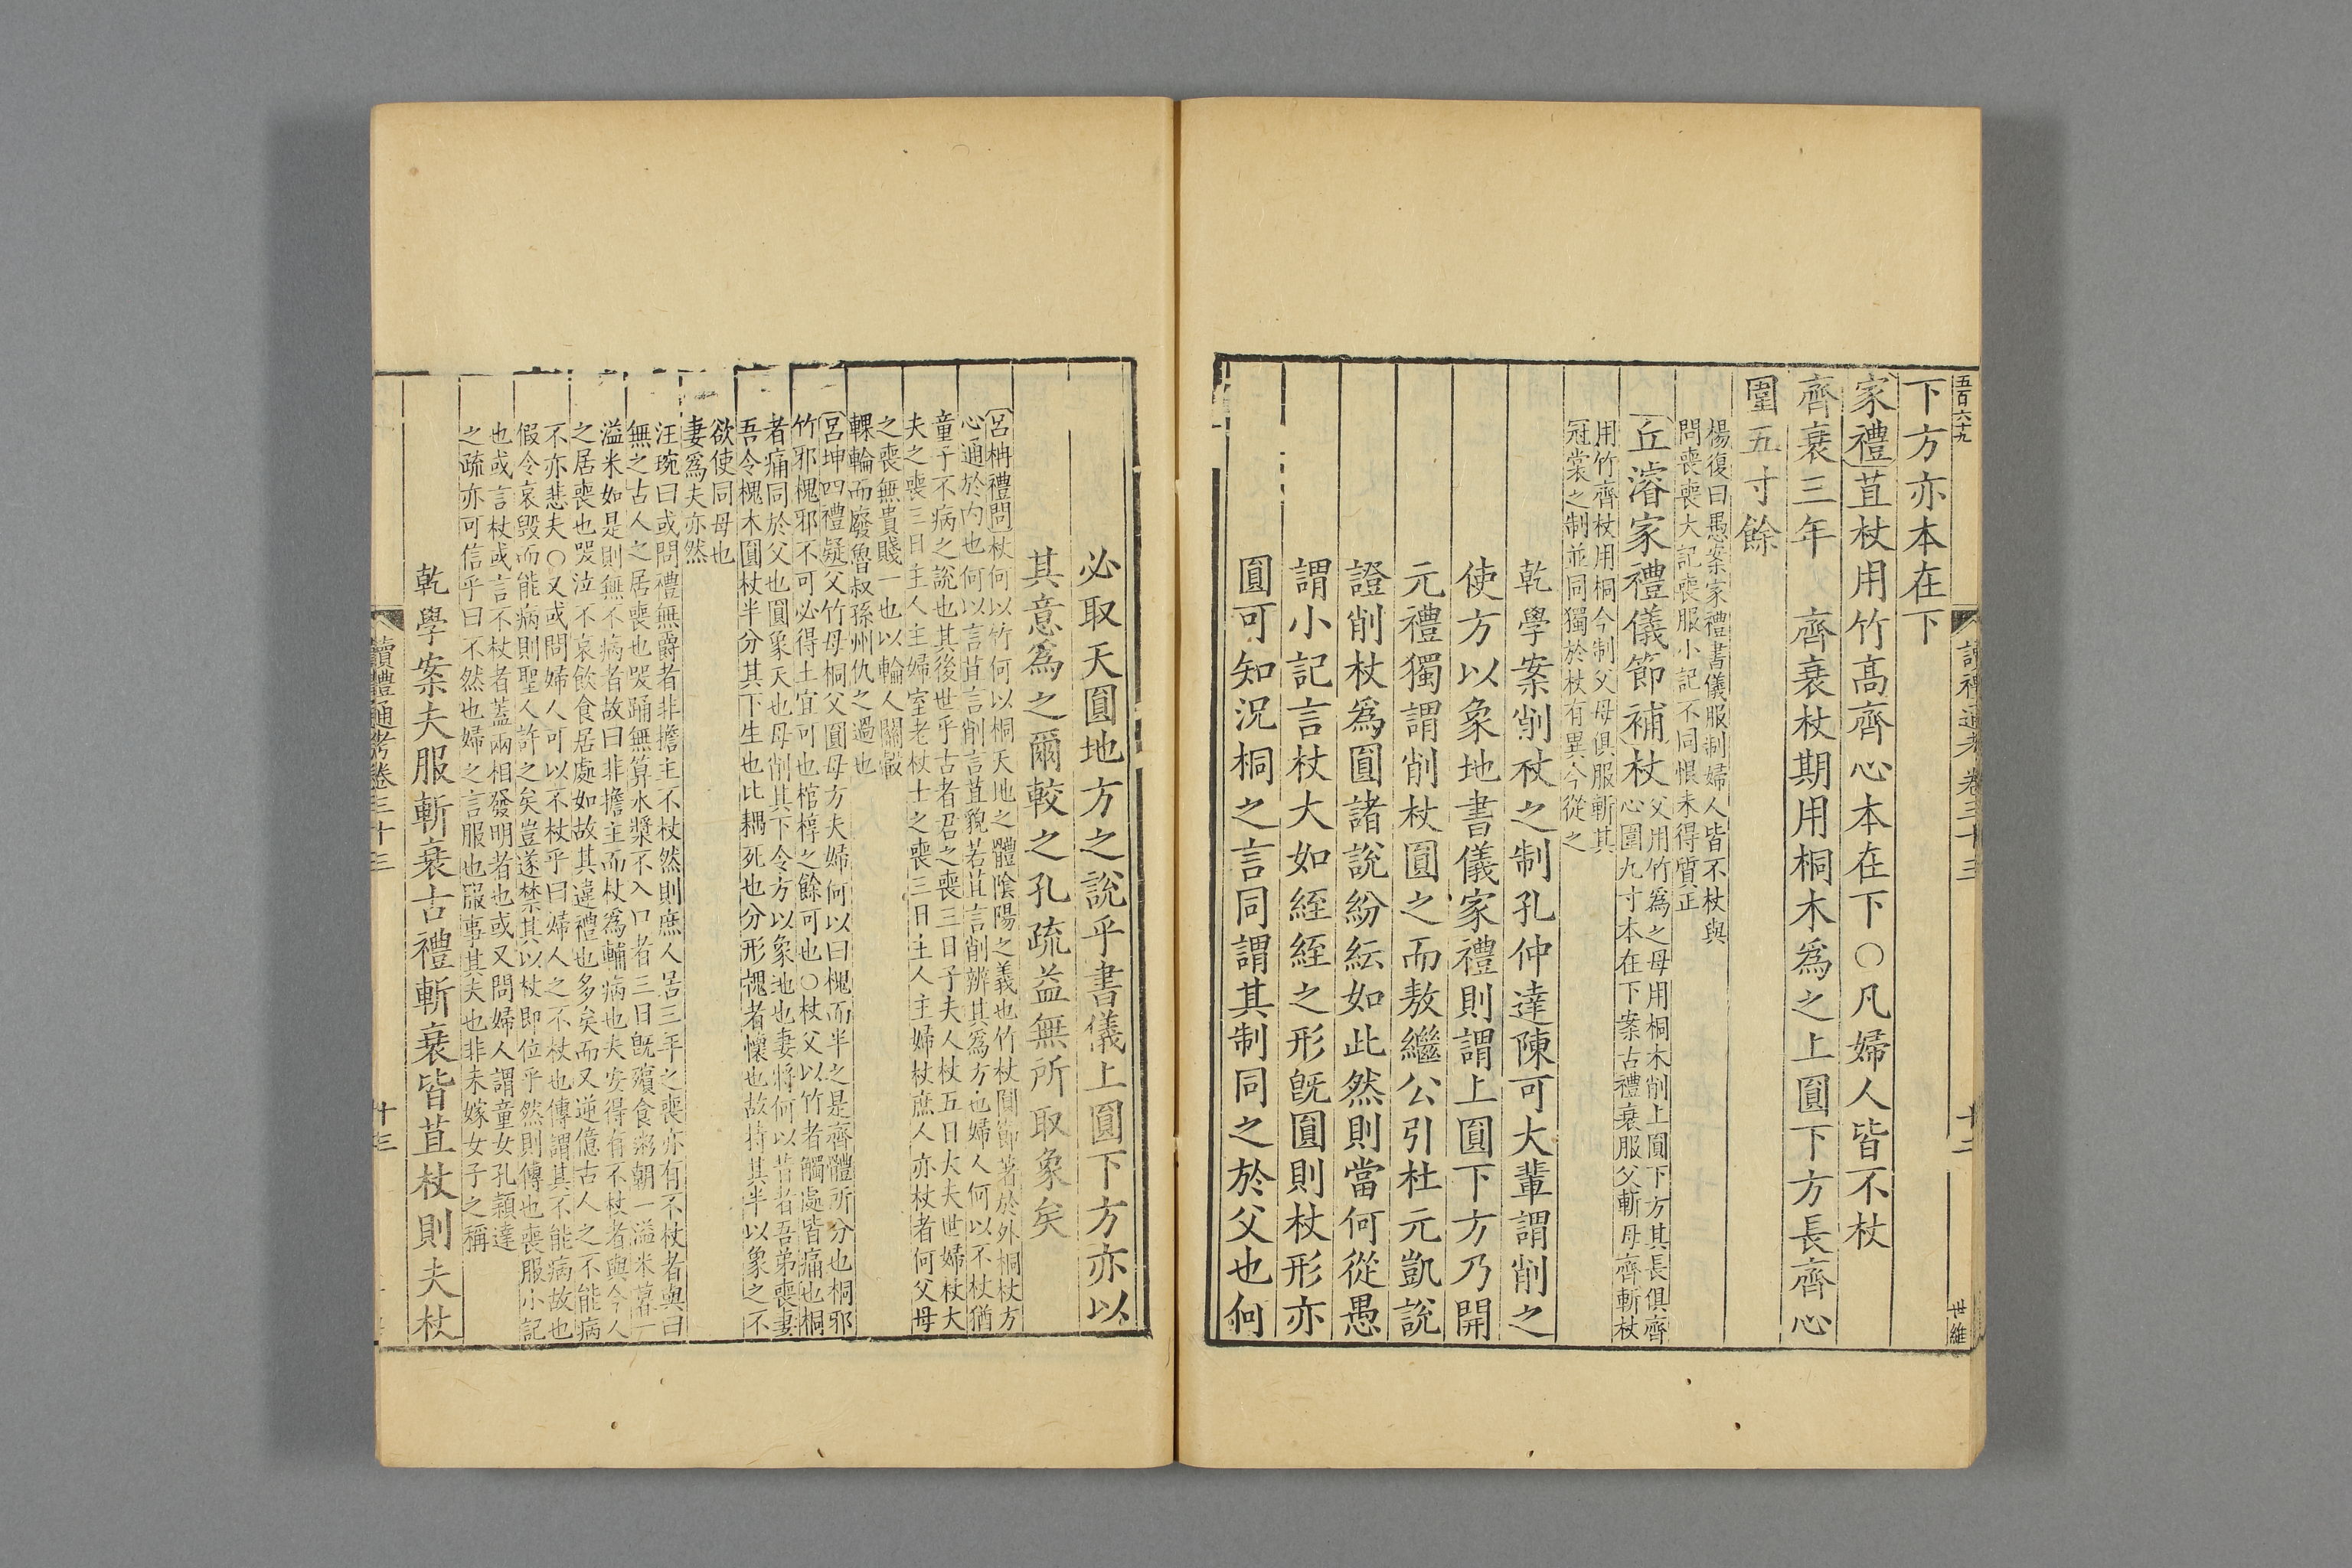 五百六十九
讀禮通考卷三十三
十二
世維
下方亦本在下
家禮苴杖用竹高齊心本在下○凡婦人皆不杖
齊衰三年 齊衰杖期用桐木爲之上圓下方長齊心
圍五寸餘
楊復曰愚案家禮書儀服制婦人皆不杖與
問喪喪大記喪服小記不同恨未得質正
丘濬家禮儀節補杖父用竹爲之母用桐木削上圓下方其長俱齊
心圍九寸本在下案古禮衰服父斬母齊斬杖
用竹齊杖用桐今制父母俱服斬其
冠裳之制並同獨於杖有異今從之
乾學案削杖之制孔仲達陳可大輩謂削之
使方以象地書儀家禮則謂上圓下方乃開
元禮獨謂削杖圓之而敖繼公引杜元凱說
證削杖爲圓諸說紛紜如此然則當何從愚
謂小記言杖大如絰絰之形旣圓則杖形亦
圓可知況桐之言同謂其制同之於父也何
必取天圓地方之說乎書儀上圓下方亦以
其意爲之爾較之孔疏益無所取象矣
呂柟禮問杖何以竹何以桐天地之體陰陽之義也竹杖圓節著於外桐杖方
心通於內也何以言苴言削言苴貌若苴言削辨其爲方也婦人何以不杖猶
童子不病之說也其後世乎古者君之喪三日子夫人杖五日大夫世婦杖大
夫之喪三日主人主婦室老杖士之喪三日主人主婦杖庶人亦杖者何父母
之喪無貴賤一也以輪人關轂
輠輪而廢魯叔孫州仇之過也
呂坤四禮疑父竹母桐父圓母方夫婦何以曰槐而半之是齊體所分也桐邪
竹邪槐邪不可必得土宜可也棺椁之餘可也○杖父以竹者觸處皆痛也桐
者痛同於父也圓象天也母削其下令方以象地也妻將何以昔者吾弟喪妻
吾令槐木圓杖半分其下生也比耦死也分形槐者懷也故持其半以象之不
欲使同母也
妻爲夫亦然
汪琬曰或問禮無爵者非擔主不杖然則庶人居三年之喪亦有不杖者與曰
無之古人之居喪也哭踊無算水漿不入口者三日旣殯食粥朝一溢米暮一
溢米如是則無不病者故曰非擔主而杖爲輔病也夫安得有不杖者與今人
之居喪也哭泣不哀飲食居處如故其違禮也多矣而又逆億古人之不能病
不亦悲夫○又或問婦人可以不杖乎曰婦人之不杖也傳謂其不能病故也
假令哀毀而能病則聖人許之矣豈遂禁其以杖即位乎然則傳也喪服小記
也或言杖或言不杖者蓋兩相發明者也或又問婦人謂童女孔穎達
之疏亦可信乎曰不然也婦之言服也服事其夫也非未嫁女子之稱
乾學案夫服斬衰古禮斬衰皆苴杖則夫杖
讀禮通考卷三十三
十三